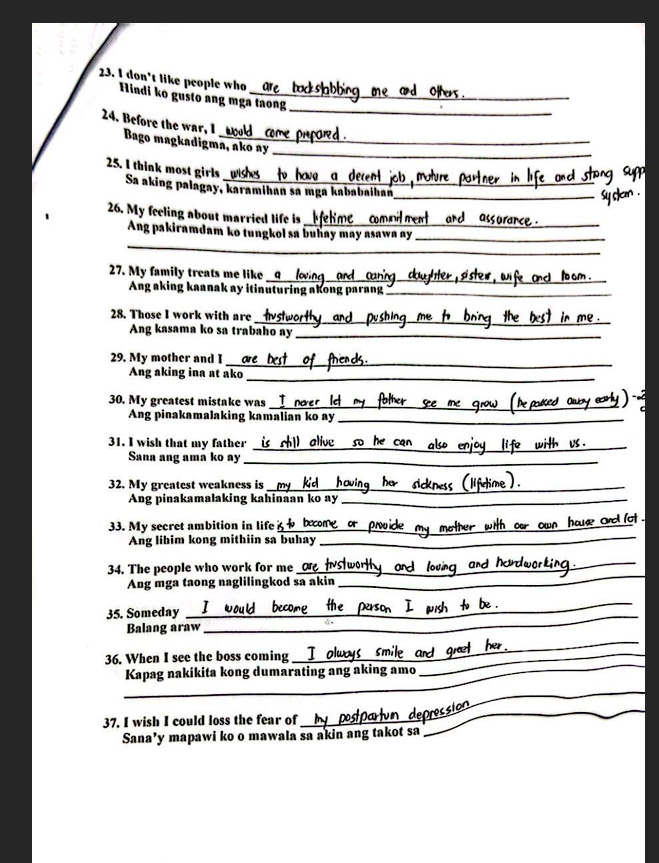 23. I don't like people who are backstabbing me and others.
Hindi ko gusto ang mga taong
24. Before the war, I would come prepared.
Bago magkadigma, ako ay
25. I think most girls wishes to have a decent job, mature partner in life and strong supp
Sa aking palagay, karamihan sa mga kababaihan system.
26. My feeling about married life is lifetime commitment and assurance.
Ang pakiramdam ko tungkol sa buhay may asawa ay
27. My family treats me like a loving and caring daughter, sister, wife and mom.
Ang aking kaanak ay itinuturing akong parang
28. Those I work with are trustworthy and pushing me to bring the best in me.
Ang kasama ko sa trabaho ay
29. My mother and I are best of friends.
Ang aking ina at ako
30. My greatest mistake was I never let my father see me grow (he passed away early)
Ang pinakamalaking kamalian ko ay
31. I wish that my father is still alive so he can also enjoy life with us.
Sana ang ama ko ay
32. My greatest weakness is my kid having her sickness (lifetime).
Ang pinakamalaking kahinaan ko ay
33. My secret ambition in life is to become or provide my mother with our own house and lot.
Ang lihim kong mithiin sa buhay
34. The people who work for me are trstworthy and loving and hardworking.
Ang mga taong naglilingkod sa akin
35. Someday I would become the person I wish to be.
Balang araw
36. When I see the boss coming I always smile and greet her.
Kapag nakikita kong dumarating ang aking amo
37. I wish I could loss the fear of my postpartum depression
Sana'y mapawi ko o mawala sa akin ang takot sa